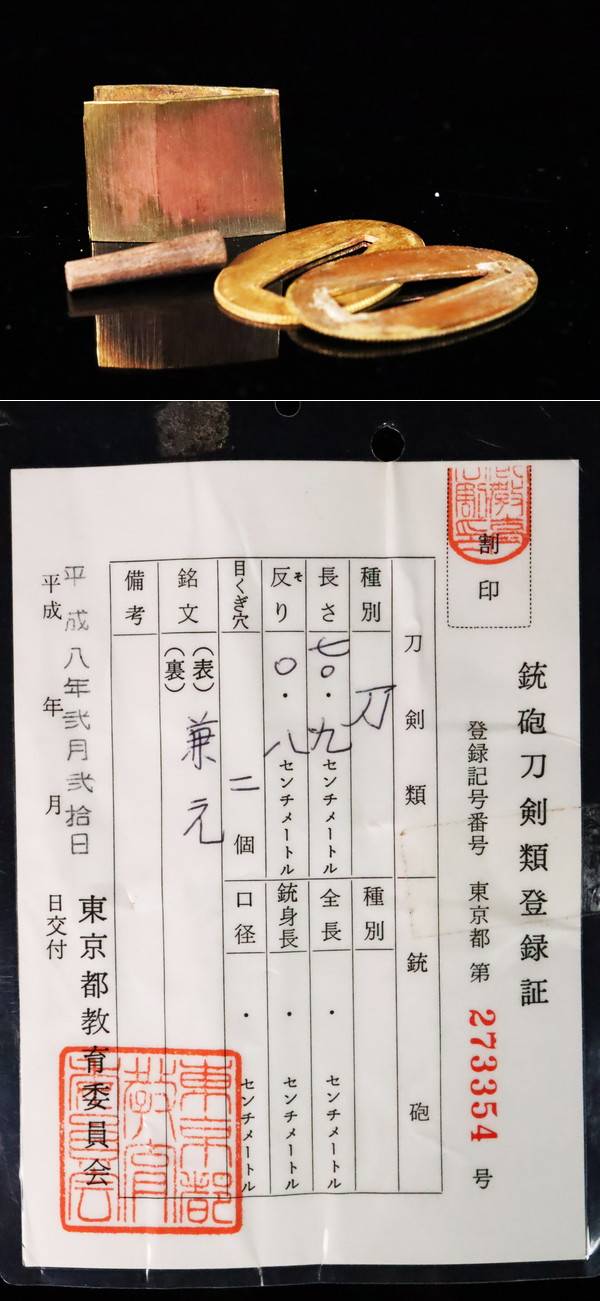 割印
銃砲刀剣類登録証
登録記号番号 東京都 第 273354 号
刀剣類 銃砲
種別 刀
種別
長さ 七〇.九 センチメートル
全長 . センチメートル
反り そ 〇.八 センチメートル
銃身長 . センチメートル
目くぎ穴 二個
口径 . センチメートル
銘文 (表) 兼元
(裏)
備考
平成八年弐月弐拾日
平成 年 月 日交付
東京都教育委員会
東京都教育委員会